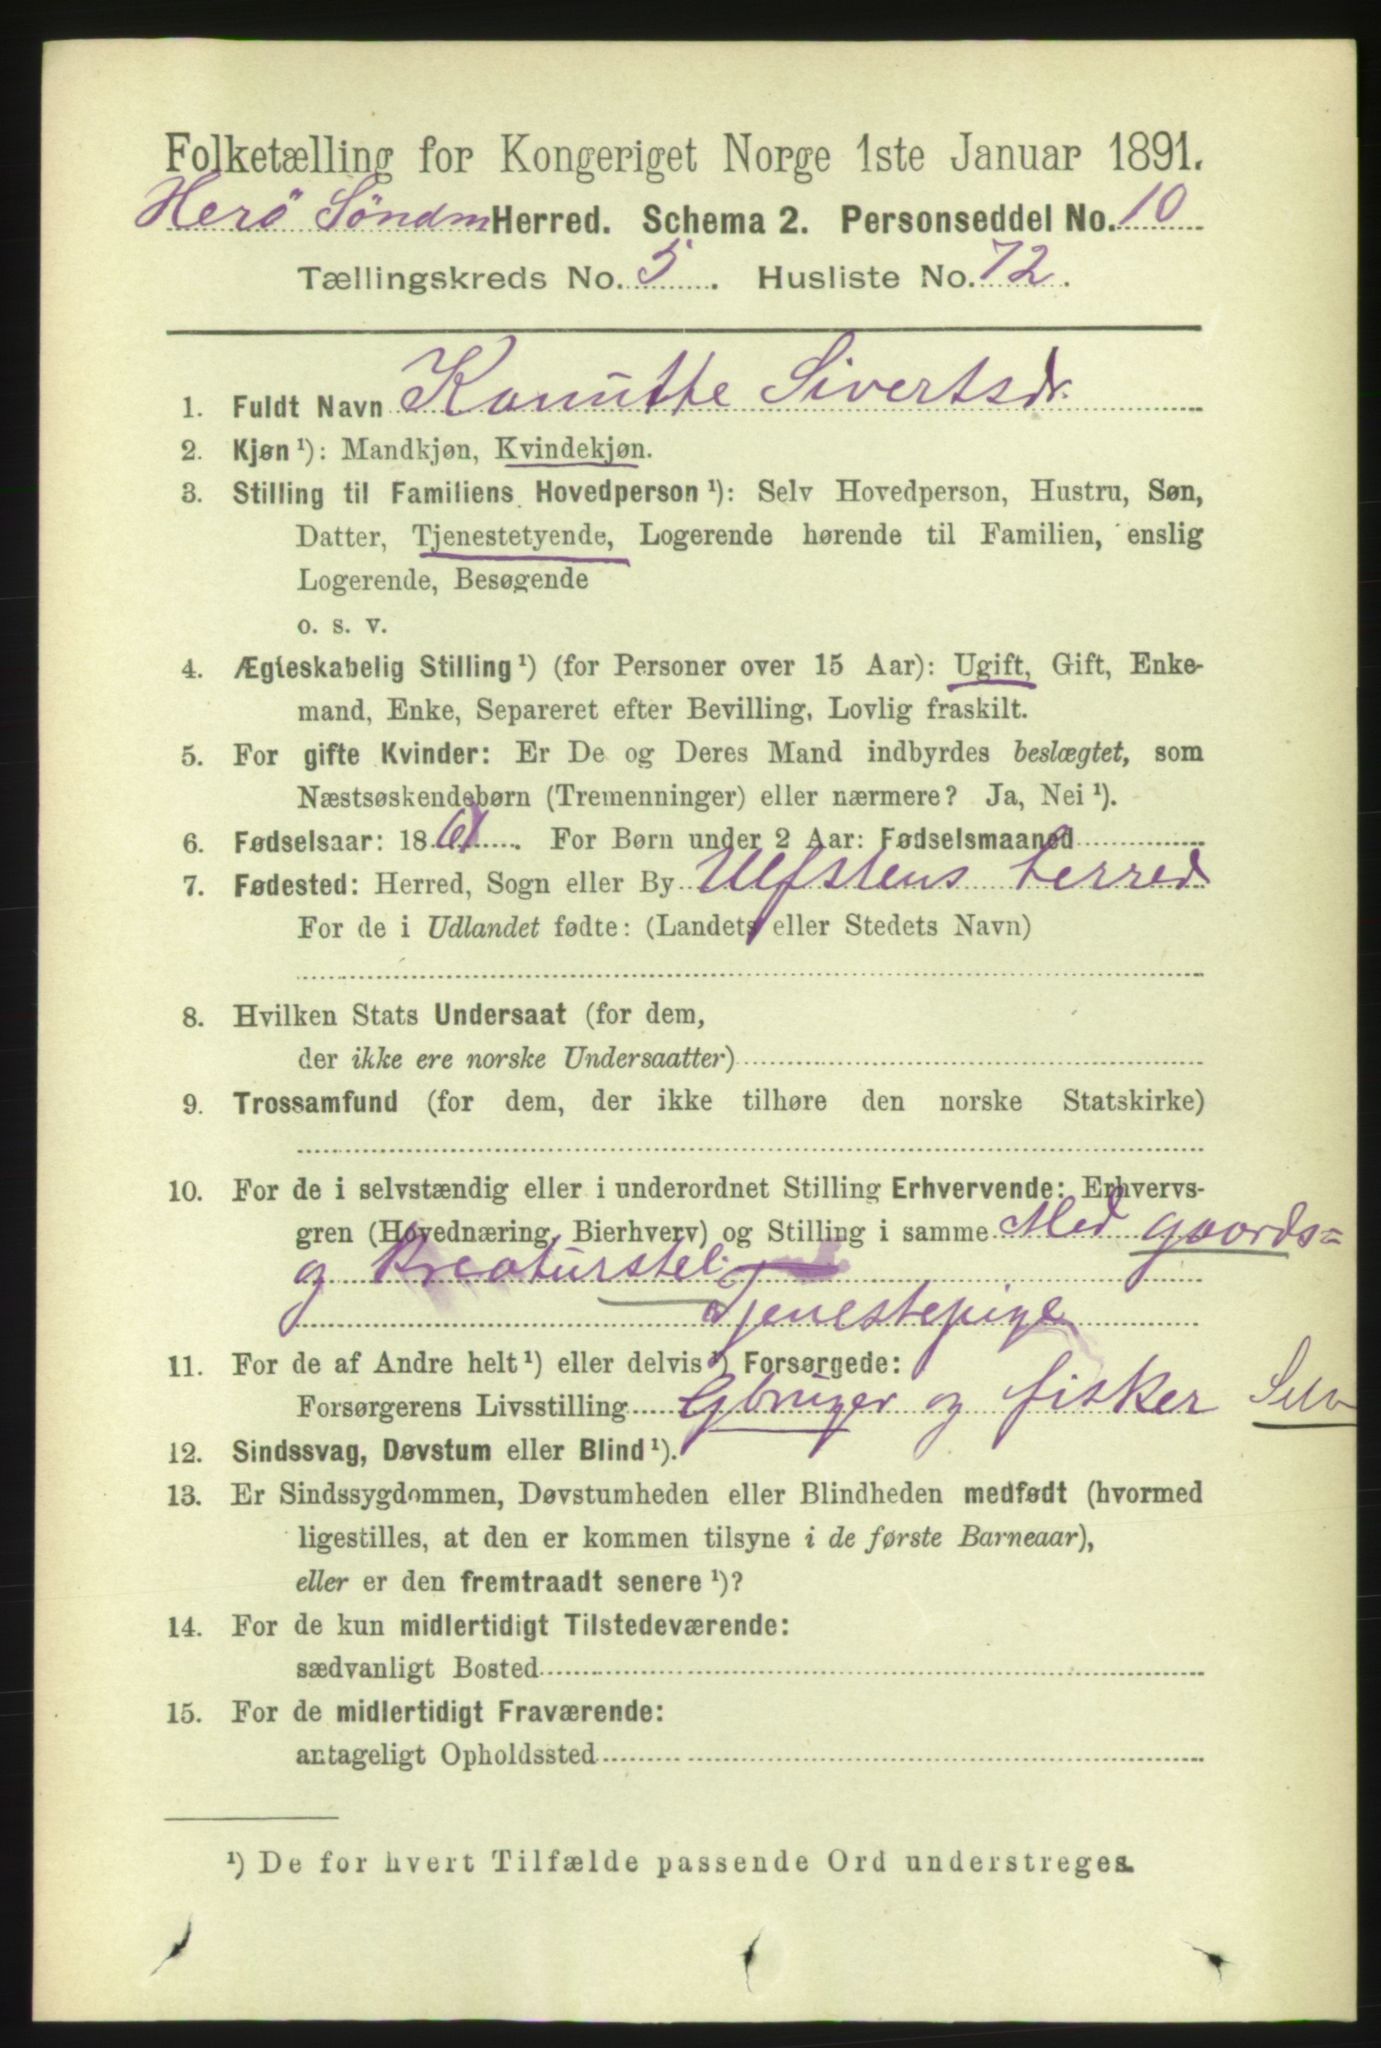 Folketælling for Kongeriget Norge 1ste Januar 1891.
Herö Söndm Herred. Schema 2. Personseddel No. 10
Tællingskreds No. 5. Husliste No. 72.
1. Fuldt Navn Kanutte Sivertsdr.
2. Kjøn ¹): Mandkjøn, Kvindekjøn.
3. Stilling til Familiens Hovedperson ¹): Selv Hovedperson, Hustru, Søn,
Datter, Tjenestetyende, Logerende hørende til Familien, enslig
Logerende, Besøgende
o. s. v.
4. Ægteskabelig Stilling ¹) (for Personer over 15 Aar): Ugift, Gift, Enke-
mand, Enke, Separeret efter Bevilling, Lovlig fraskilt.
5. For gifte Kvinder: Er De og Deres Mand indbyrdes beslægtet, som
Næstsøskendebørn (Tremenninger) eller nærmere? Ja, Nei ¹).
6. Fødselsaar: 18 . For Børn under 2 Aar: Fødselsmaaned
7. Fødested: Herred, Sogn eller By Ulfstens herred
For de i Udlandet fødte: (Landets eller Stedets Navn)
8. Hvilken Stats Undersaat (for dem,
der ikke ere norske Undersaatter)
9. Trossamfund (for dem, der ikke tilhøre den norske Statskirke)
10. For de i selvstændig eller i underordnet Stilling Erhvervende: Erhvervs-
gren (Hovednæring, Bierhverv) og Stilling i samme Med gaards=
og Kreaturstel.
Tjenestepige
11. For de af Andre helt ¹) eller delvis ¹) Forsørgede:
Forsørgerens Livsstilling Gbruger og fisker Selv
12. Sindssvag, Døvstum eller Blind ¹).
13. Er Sindssygdommen, Døvstumheden eller Blindheden medfødt (hvormed
ligestilles, at den er kommen tilsyne i de første Barneaar),
eller er den fremtraadt senere ¹)?
14. For de kun midlertidigt Tilstedeværende:
sædvanligt Bosted
15. For de midlertidigt Fraværende:
antageligt Opholdssted
¹) De for hvert Tilfælde passende Ord understreges.